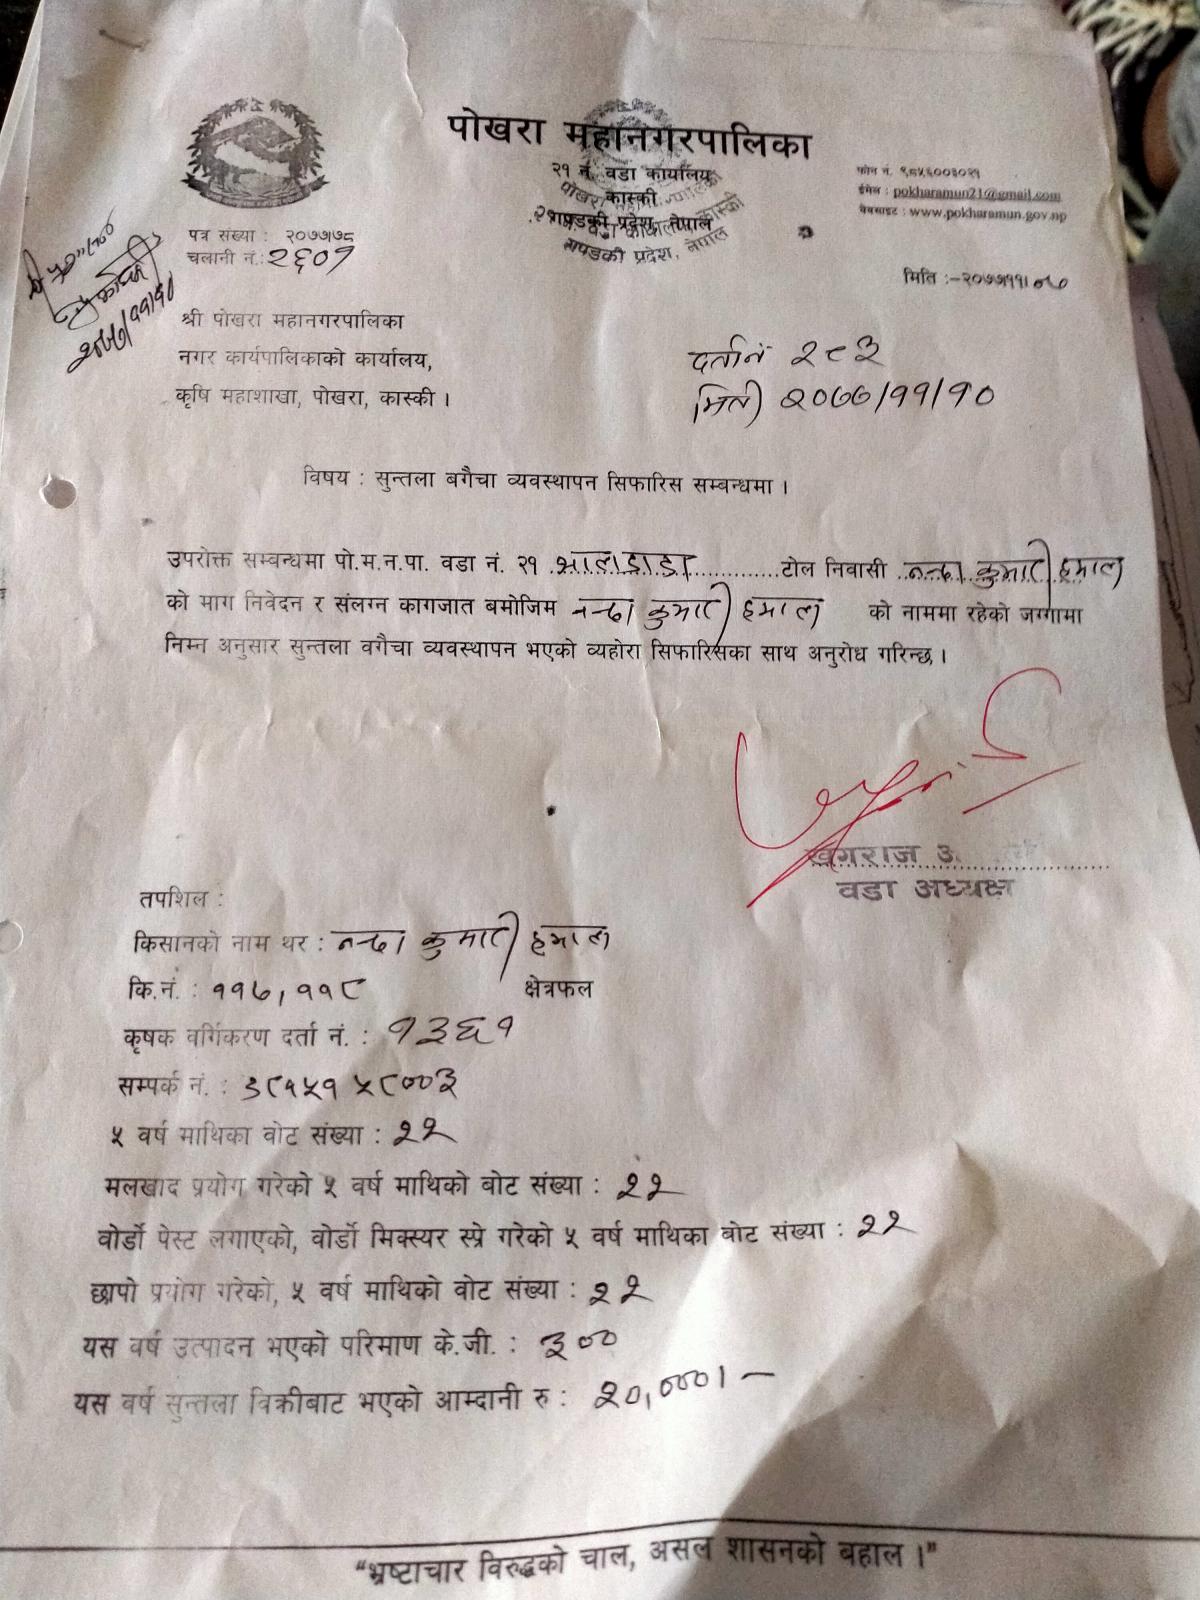 पोखरा महानगरपालिका
२१ नं. वडा कार्यालय
कास्की
गण्डकी प्रदेश, नेपाल
फोन नं. ९८५६००३०२१
ईमेल : pokharamun21@gmail.com
वेबसाइट : www.pokharamun.gov.np
पत्र संख्या : २०७७/७८
चलानी नं.: २६०१
मिति :-२०७७/११/०७
२०७७/११/१०
श्री पोखरा महानगरपालिका
नगर कार्यपालिकाको कार्यालय,
कृषि महाशाखा, पोखरा, कास्की ।
दर्ता नं २८३
मिती २०७७/११/१०
विषय : सुन्तला बगैचा व्यवस्थापन सिफारिस सम्बन्धमा ।
उपरोक्त सम्बन्धमा पो.म.न.पा. वडा नं. २१ भालाडाडा टोल निवासी नन्दा कुमारी हमाल
को माग निवेदन र संलग्न कागजात बमोजिम नन्दा कुमारी हमाल को नाममा रहेको जग्गामा
निम्न अनुसार सुन्तला वगैचा व्यवस्थापन भएको व्यहोरा सिफारिसका साथ अनुरोध गरिन्छ ।
खगराज
वडा अध्यक्ष
तपशिल :
किसानको नाम थर : नन्दा कुमारी हमाल
कि.नं. : ११७,११८ क्षेत्रफल
कृषक वर्गिकरण दर्ता नं. : १३६१
सम्पर्क नं. : ९८१५१५८००३
५ वर्ष माथिका वोट संख्या : २२
मलखाद प्रयोग गरेको ५ वर्ष माथिको बोट संख्या : २२
वोर्डो पेस्ट लगाएको, वोर्डो मिक्स्यर स्प्रे गरेको ५ वर्ष माथिका बोट संख्या : २२
छापो प्रयोग गरेको, ५ वर्ष माथिको वोट संख्या : २२
यस वर्ष उत्पादन भएको परिमाण के.जी. : ३००
यस वर्ष सुन्तला विक्रीबाट भएको आम्दानी रु : २०,०००।-
"भ्रष्टाचार विरुद्धको चाल, असल शासनको बहाल ।"